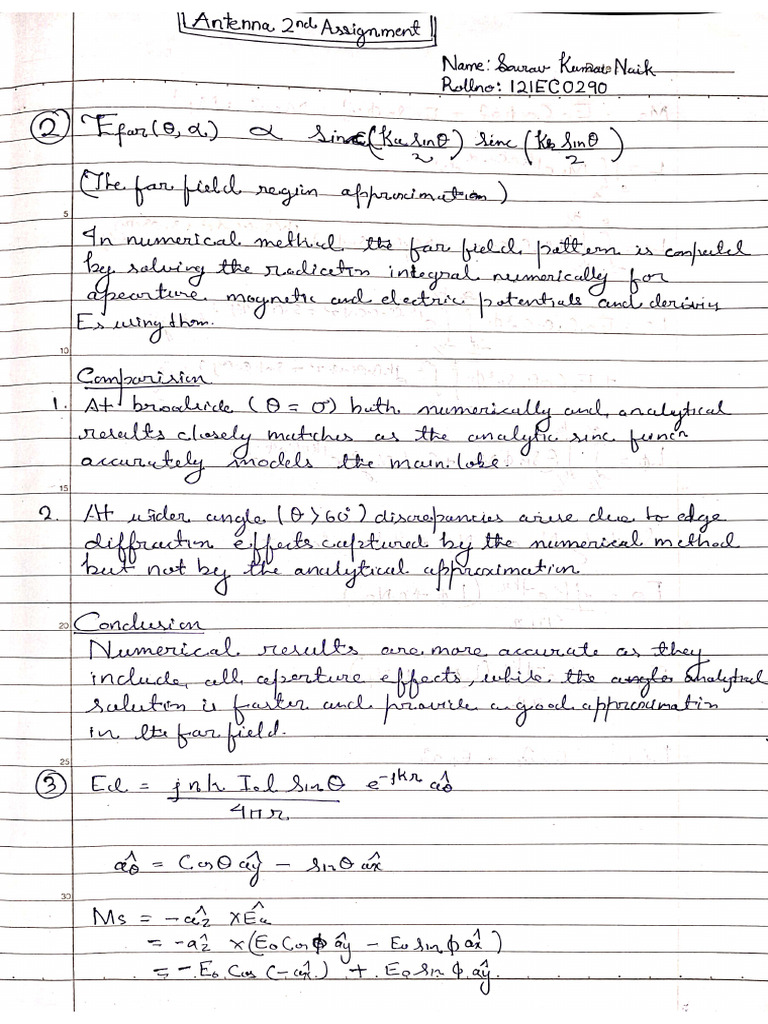 Antenna 2nd Assignment
Name: Sourav Kumar Naik
Rollno: 121EC0290
② Efar(θ, α) ∝ sinc(Ka sinθ/2) sinc (Kb sinθ/2)
(The far field regin approximation)
5
In numerical method the far field pattern is computed
by solving the radiation integral numerically for
apearture magnetic and electric potentials and deriving
Es using them.
10
Comparision
1. At broadside (θ = 0°) both numerically and analytical
results closely matches as the analytic sinc funcn
accurately models the main lobe.
15
2. At wider angle (θ > 60°) discrepancies arise due to edge
diffraction effects captured by the numerical method
but not by the analytical approximation.
20
Conclusion
Numerical results are more accurate as they
include all aperture effects, while the analytical
solution is faster and provide a good approximation
in the far field.
25
③ Ed = jηk I₀l sinθ/4πr e^-jkr âθ
âθ = Cosθ ây - sinθ âx
30
Ms = -âz × Êa
= -âz × (E₀ Cosϕ ây - E₀ sinϕ âx)
= -E₀ Cos (-âx) + E₀ sinϕ ây.